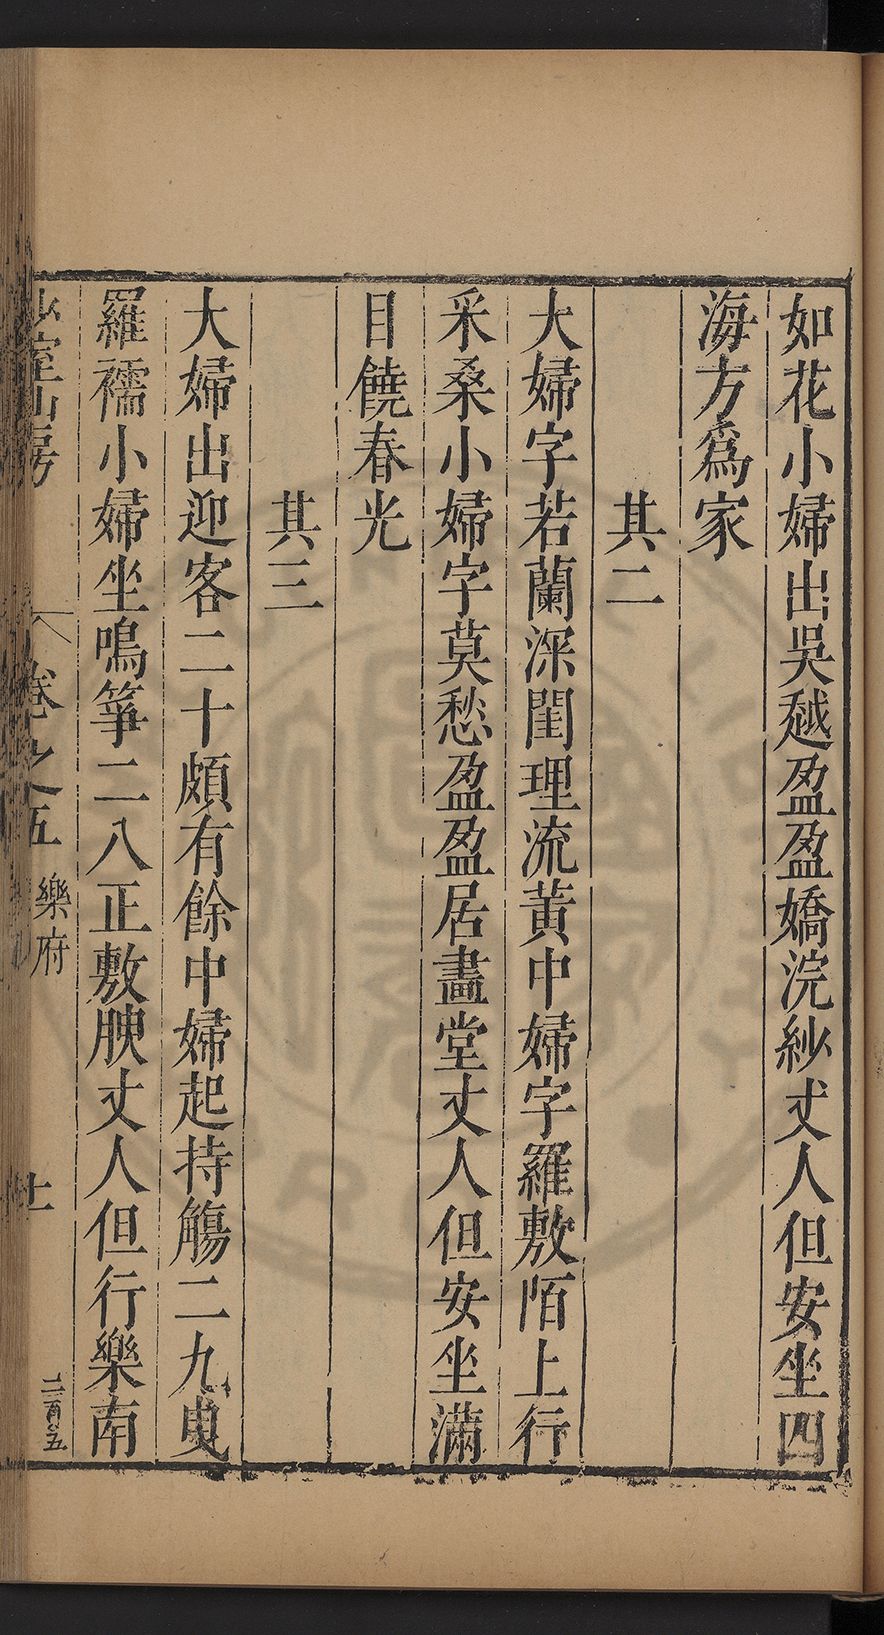 如花小婦出吳越盈盈嬌浣紗丈人但安坐四
海方爲家
其二
大婦字若蘭深閨理流黃中婦字羅敷陌上行
采桑小婦字莫愁盈盈居畫堂丈人但安坐滿
目饒春光
其三
大婦出迎客二十頗有餘中婦起持觴二九曳
羅襦小婦坐鳴箏二八正敷腴丈人但行樂南
少室山房
卷之五
樂府